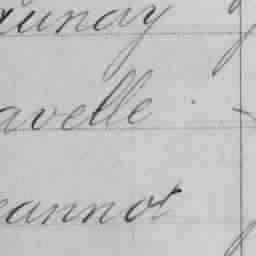 aunay
avelle
eannot